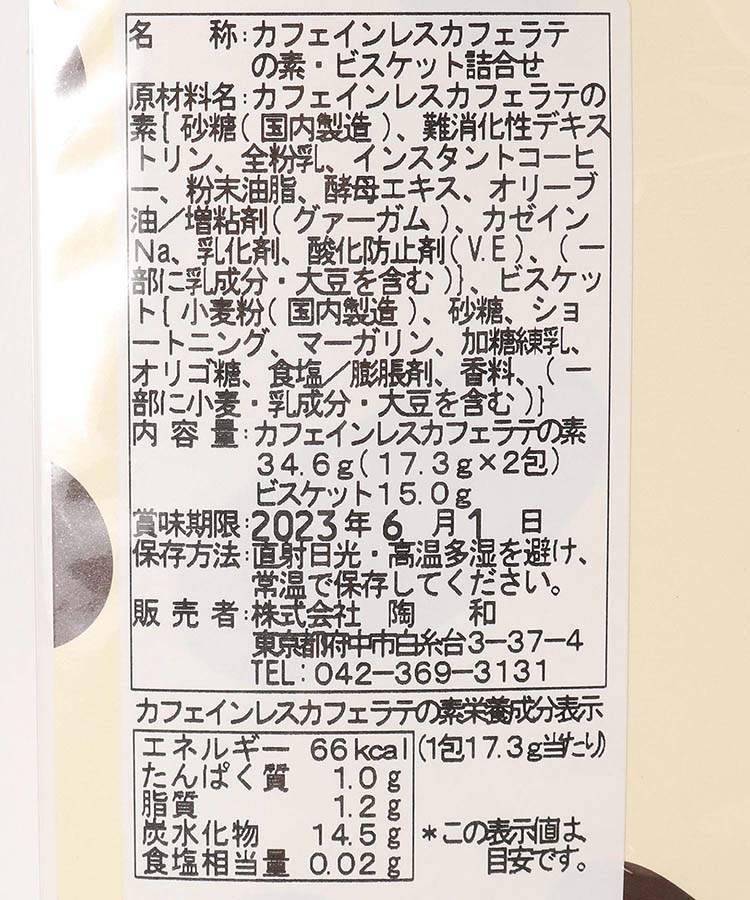 名称:カフェインレスカフェラテ
の素・ビスケット詰合せ
原材料名:カフェインレスカフェラテの
素{砂糖(国内製造)、難消化性デキス
トリン、全粉乳、インスタントコーヒ
ー、粉末油脂、酵母エキス、オリーブ
油／増粘剤(グァーガム)、カゼイン
Na、乳化剤、酸化防止剤(V.E)、(一
部に乳成分・大豆を含む)}、ビスケッ
ト{小麦粉(国内製造)、砂糖、ショ
ートニング、マーガリン、加糖練乳、
オリゴ糖、食塩／膨脹剤、香料、(一
部に小麦・乳成分・大豆を含む)}
内容量:カフェインレスカフェラテの素
34.6g(17.3g×2包)
ビスケット15.0g
賞味期限:2023年6月1日
保存方法:直射日光・高温多湿を避け、
常温で保存してください。
販売者:株式会社 陶和
東京都府中市白糸台3-37-4
TEL:042-369-3131
カフェインレスカフェラテの素栄養成分表示
エネルギー 66kcal (1包17.3g当たり)
たんぱく質 1.0g
脂質 1.2g
炭水化物 14.5g *この表示値は、
食塩相当量 0.02g 目安です。